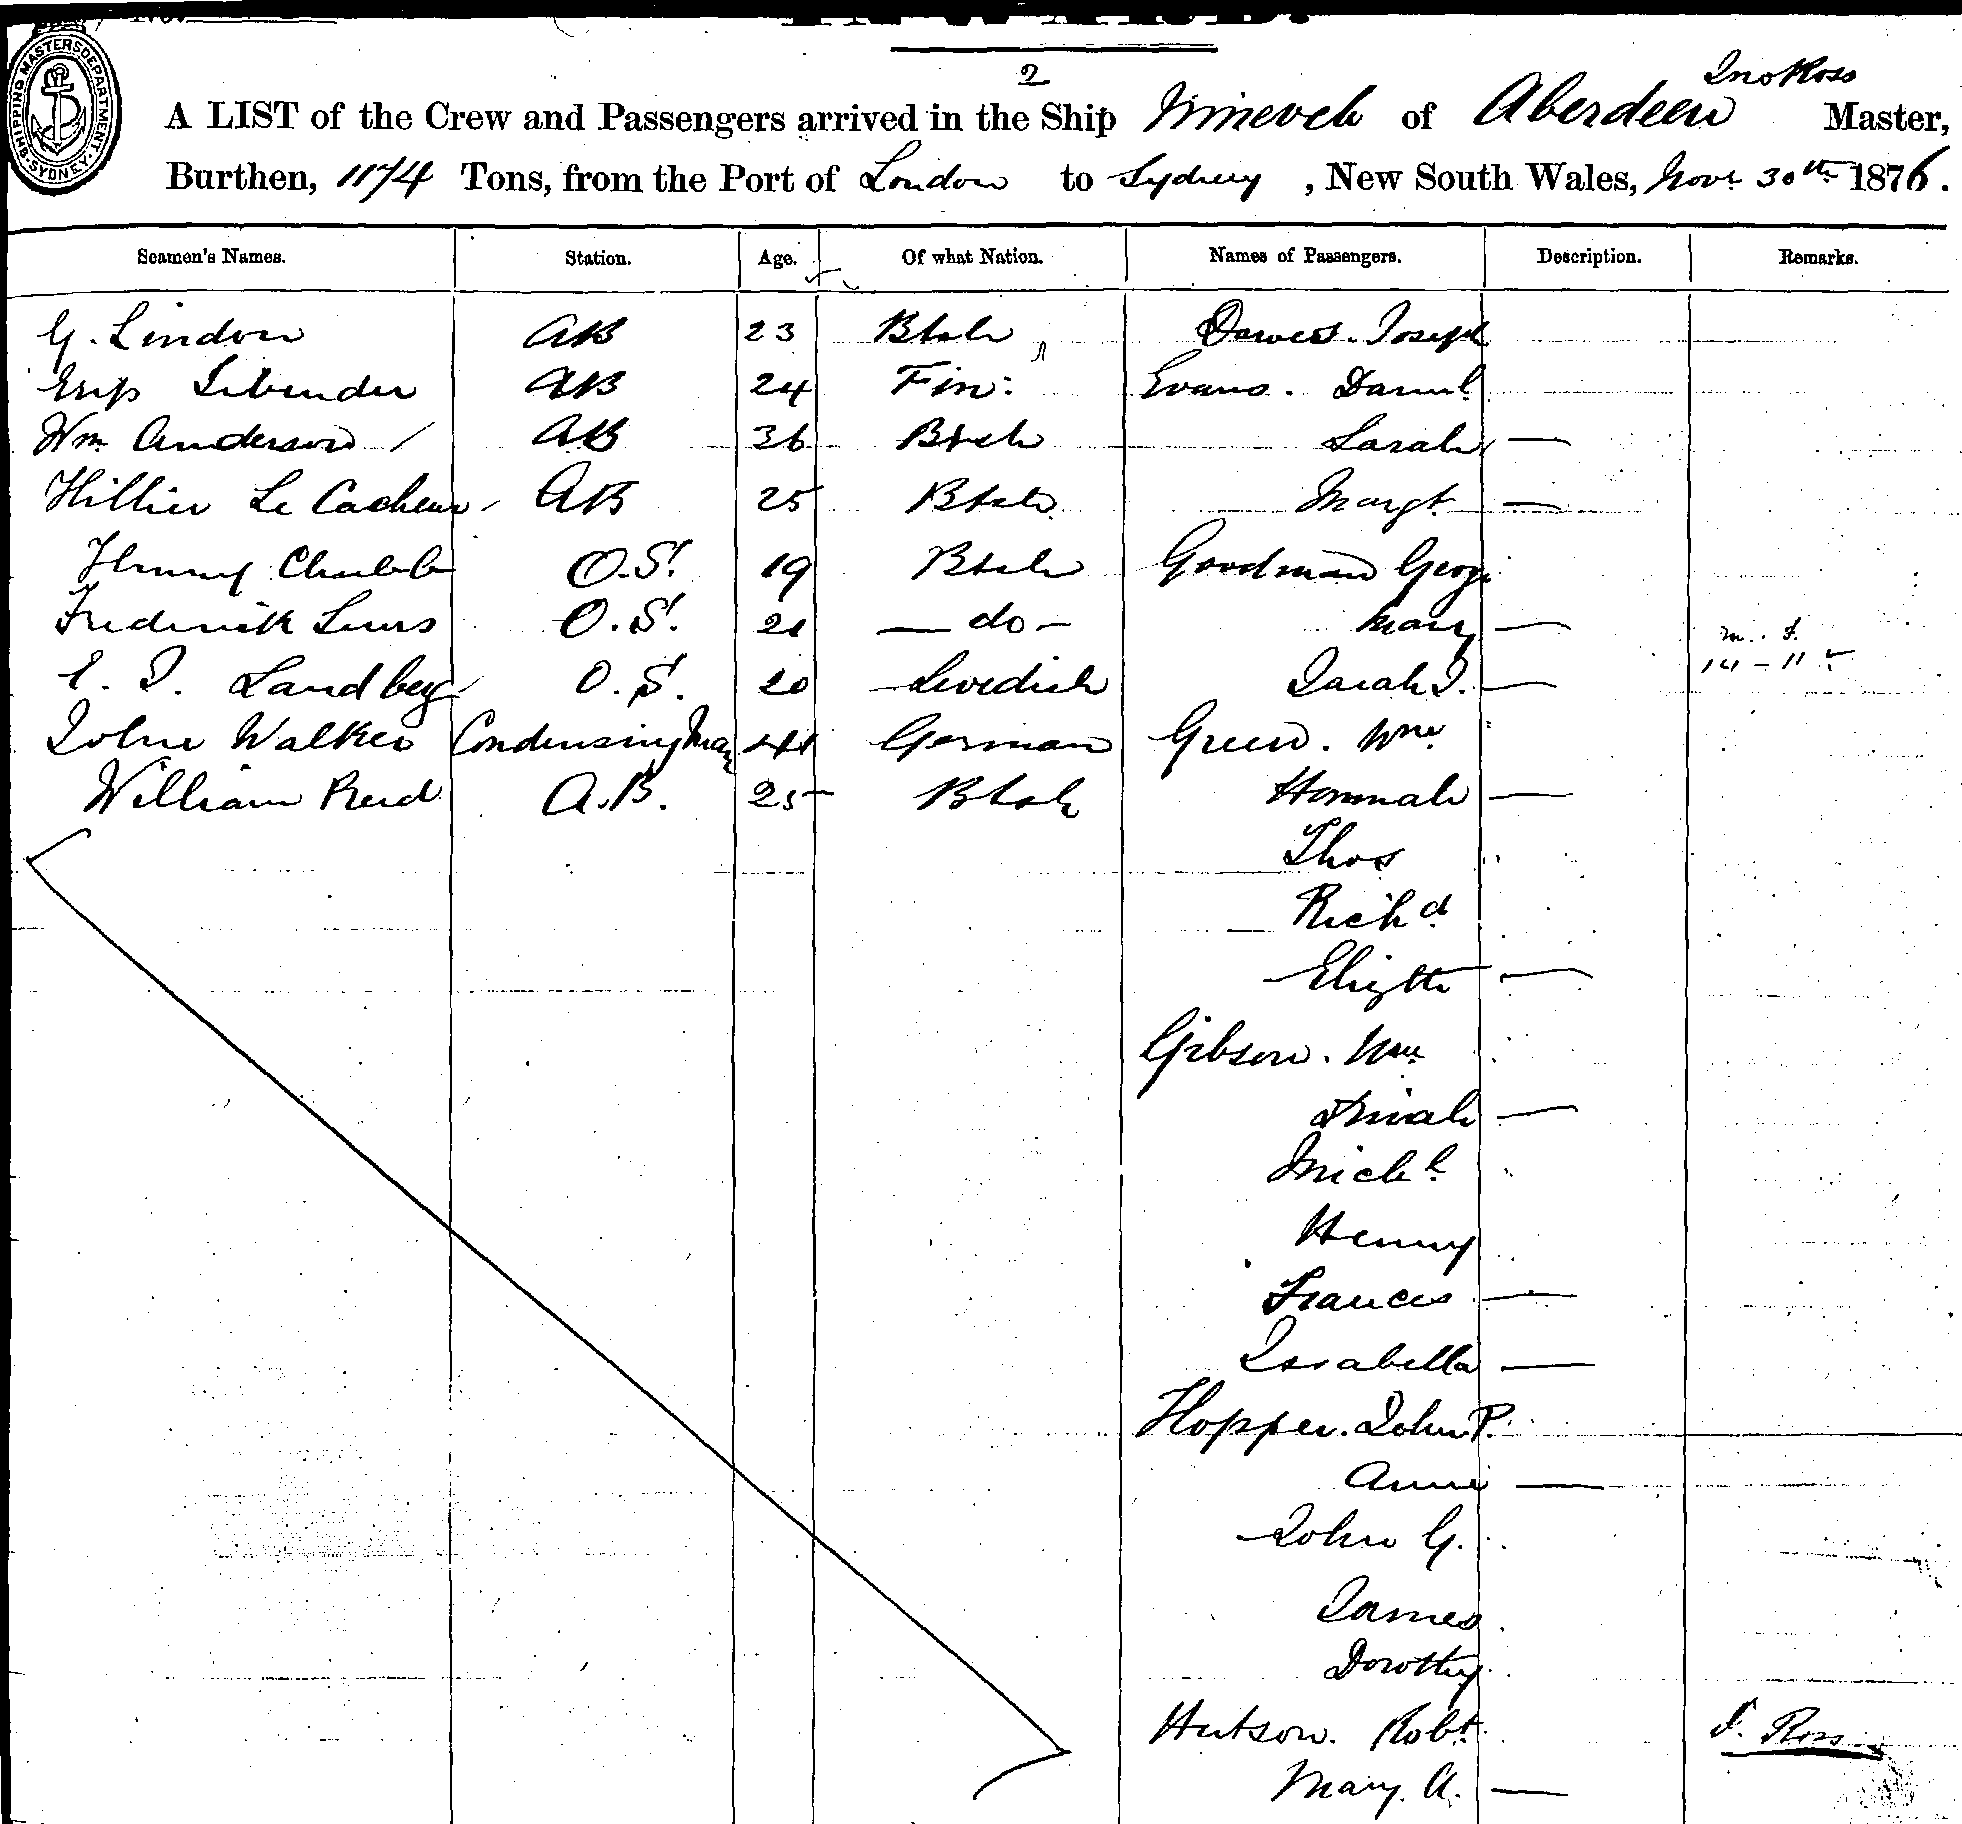 SHIPPING MASTERS DEPARTMENT. SYDNEY.
INWARD.
2
Jno Ross
A LIST of the Crew and Passengers arrived in the Ship Nineveh of Aberdeen Master,
Burthen, 1174 Tons, from the Port of London to Sydney , New South Wales, Novr 30th 1876.
Seamen's Names. Station. Age. Of what Nation. Names of Passengers. Description. Remarks.
G. Lindon AB 23 Btsh Dawes. Joseph
AB 24 Fin: Evans. Danl
Wm Anderson AB 36 Btsh Sarah —
Hillier Le Cacheur AB 25 Btsh Margt —
Henry Chubb O.S. 19 Btsh Goodman George
Frederick O.S. 21 — do — Mary —
m. f.
14 - 11
Landberg O.S. 20 Swedish Sarah J. —
John Walker Condensing Man 44 German Green. Wm
William Reid A.B. 25 Btsh Hannah —
Thos
Richd
Elizth —
Gibson. Wm
Dinah —
Michl
Henry
Frances —
Isabella —
Hopper. John P.
Annie —
John G.
James
Dorothy
Hutson. Robt
J. Ross
Mary. A. —